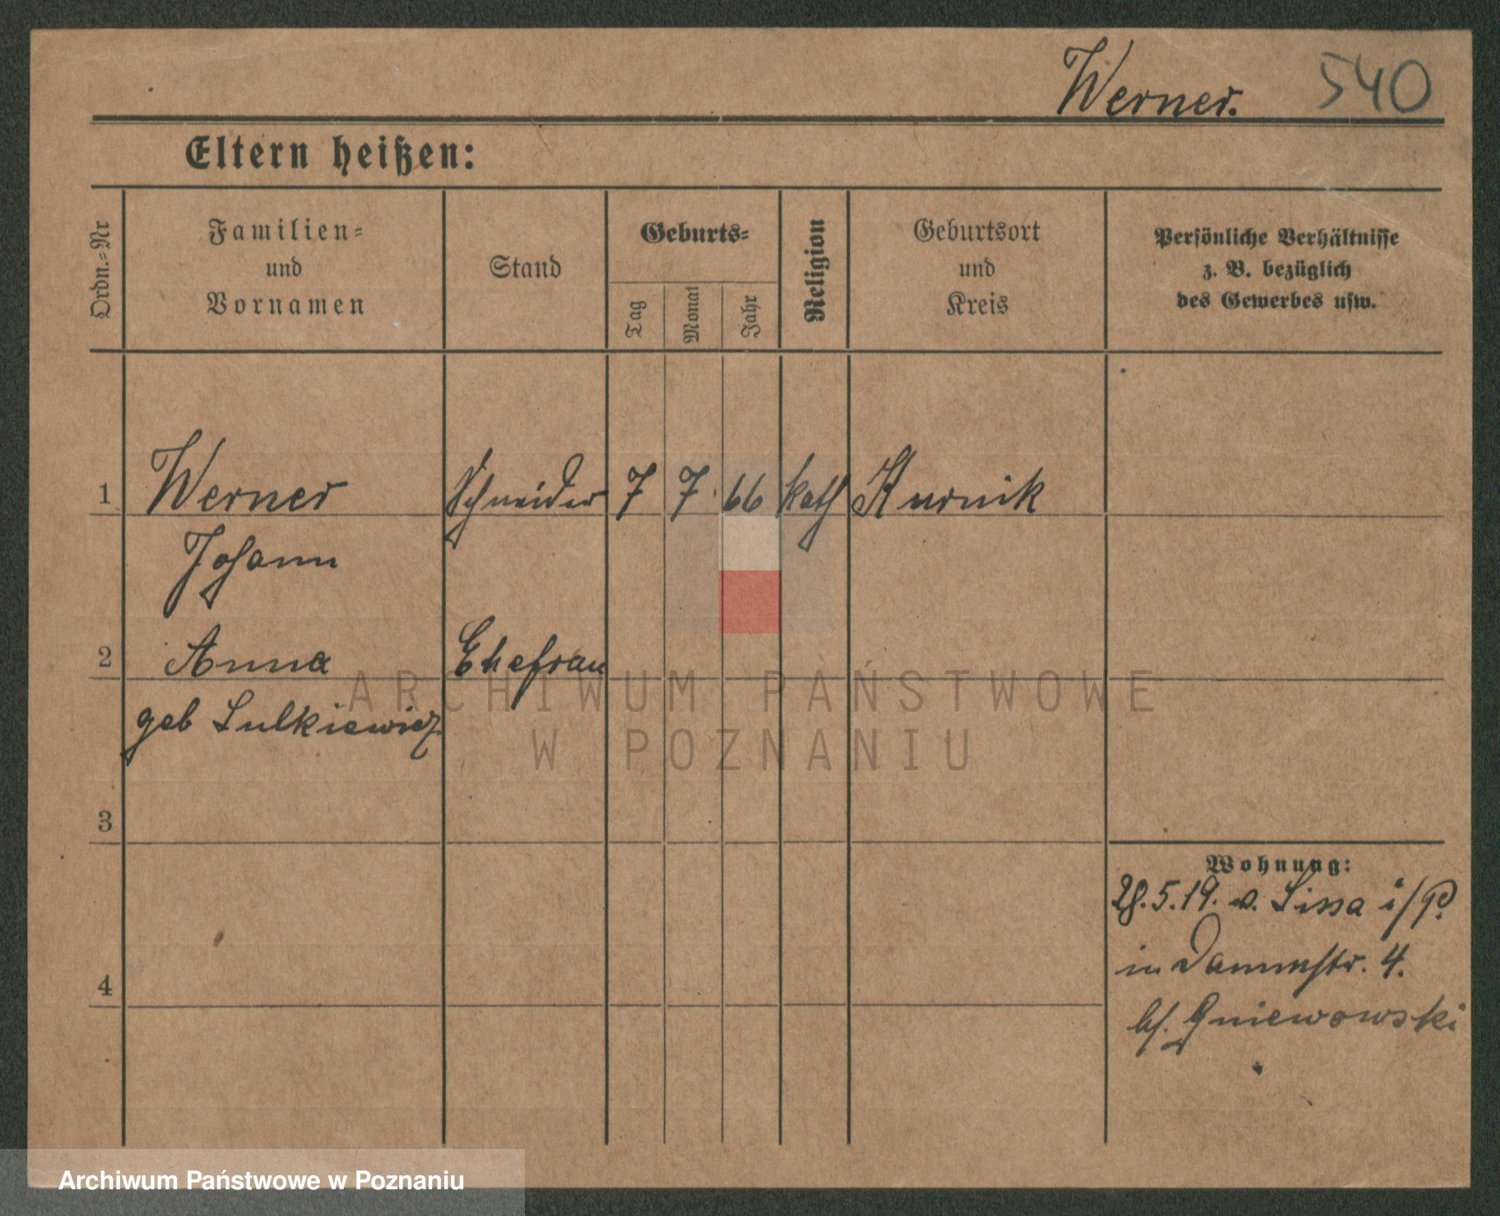 Werner. 540
Eltern heißen:
Ordn.-Nr
Familien-
und
Vornamen
Stand
Geburts-
Tag
Monat
Jahr
Religion
Geburtsort
und
Kreis
Persönliche Verhältnisse
z. B. bezüglich
des Gewerbes usw.
1 Werner Schneider 7 7. 66 kath Kurnik
Johann
2 Anna Ehefrau
geb Sulkiewicz
ARCHIWUM PAŃSTWOWE
W POZNANIU
3
Wohnung:
28.5.19. v. Lissa i/P.
in Dammstr. 4.
4
bf. Gniewowski
Archiwum Państwowe w Poznaniu